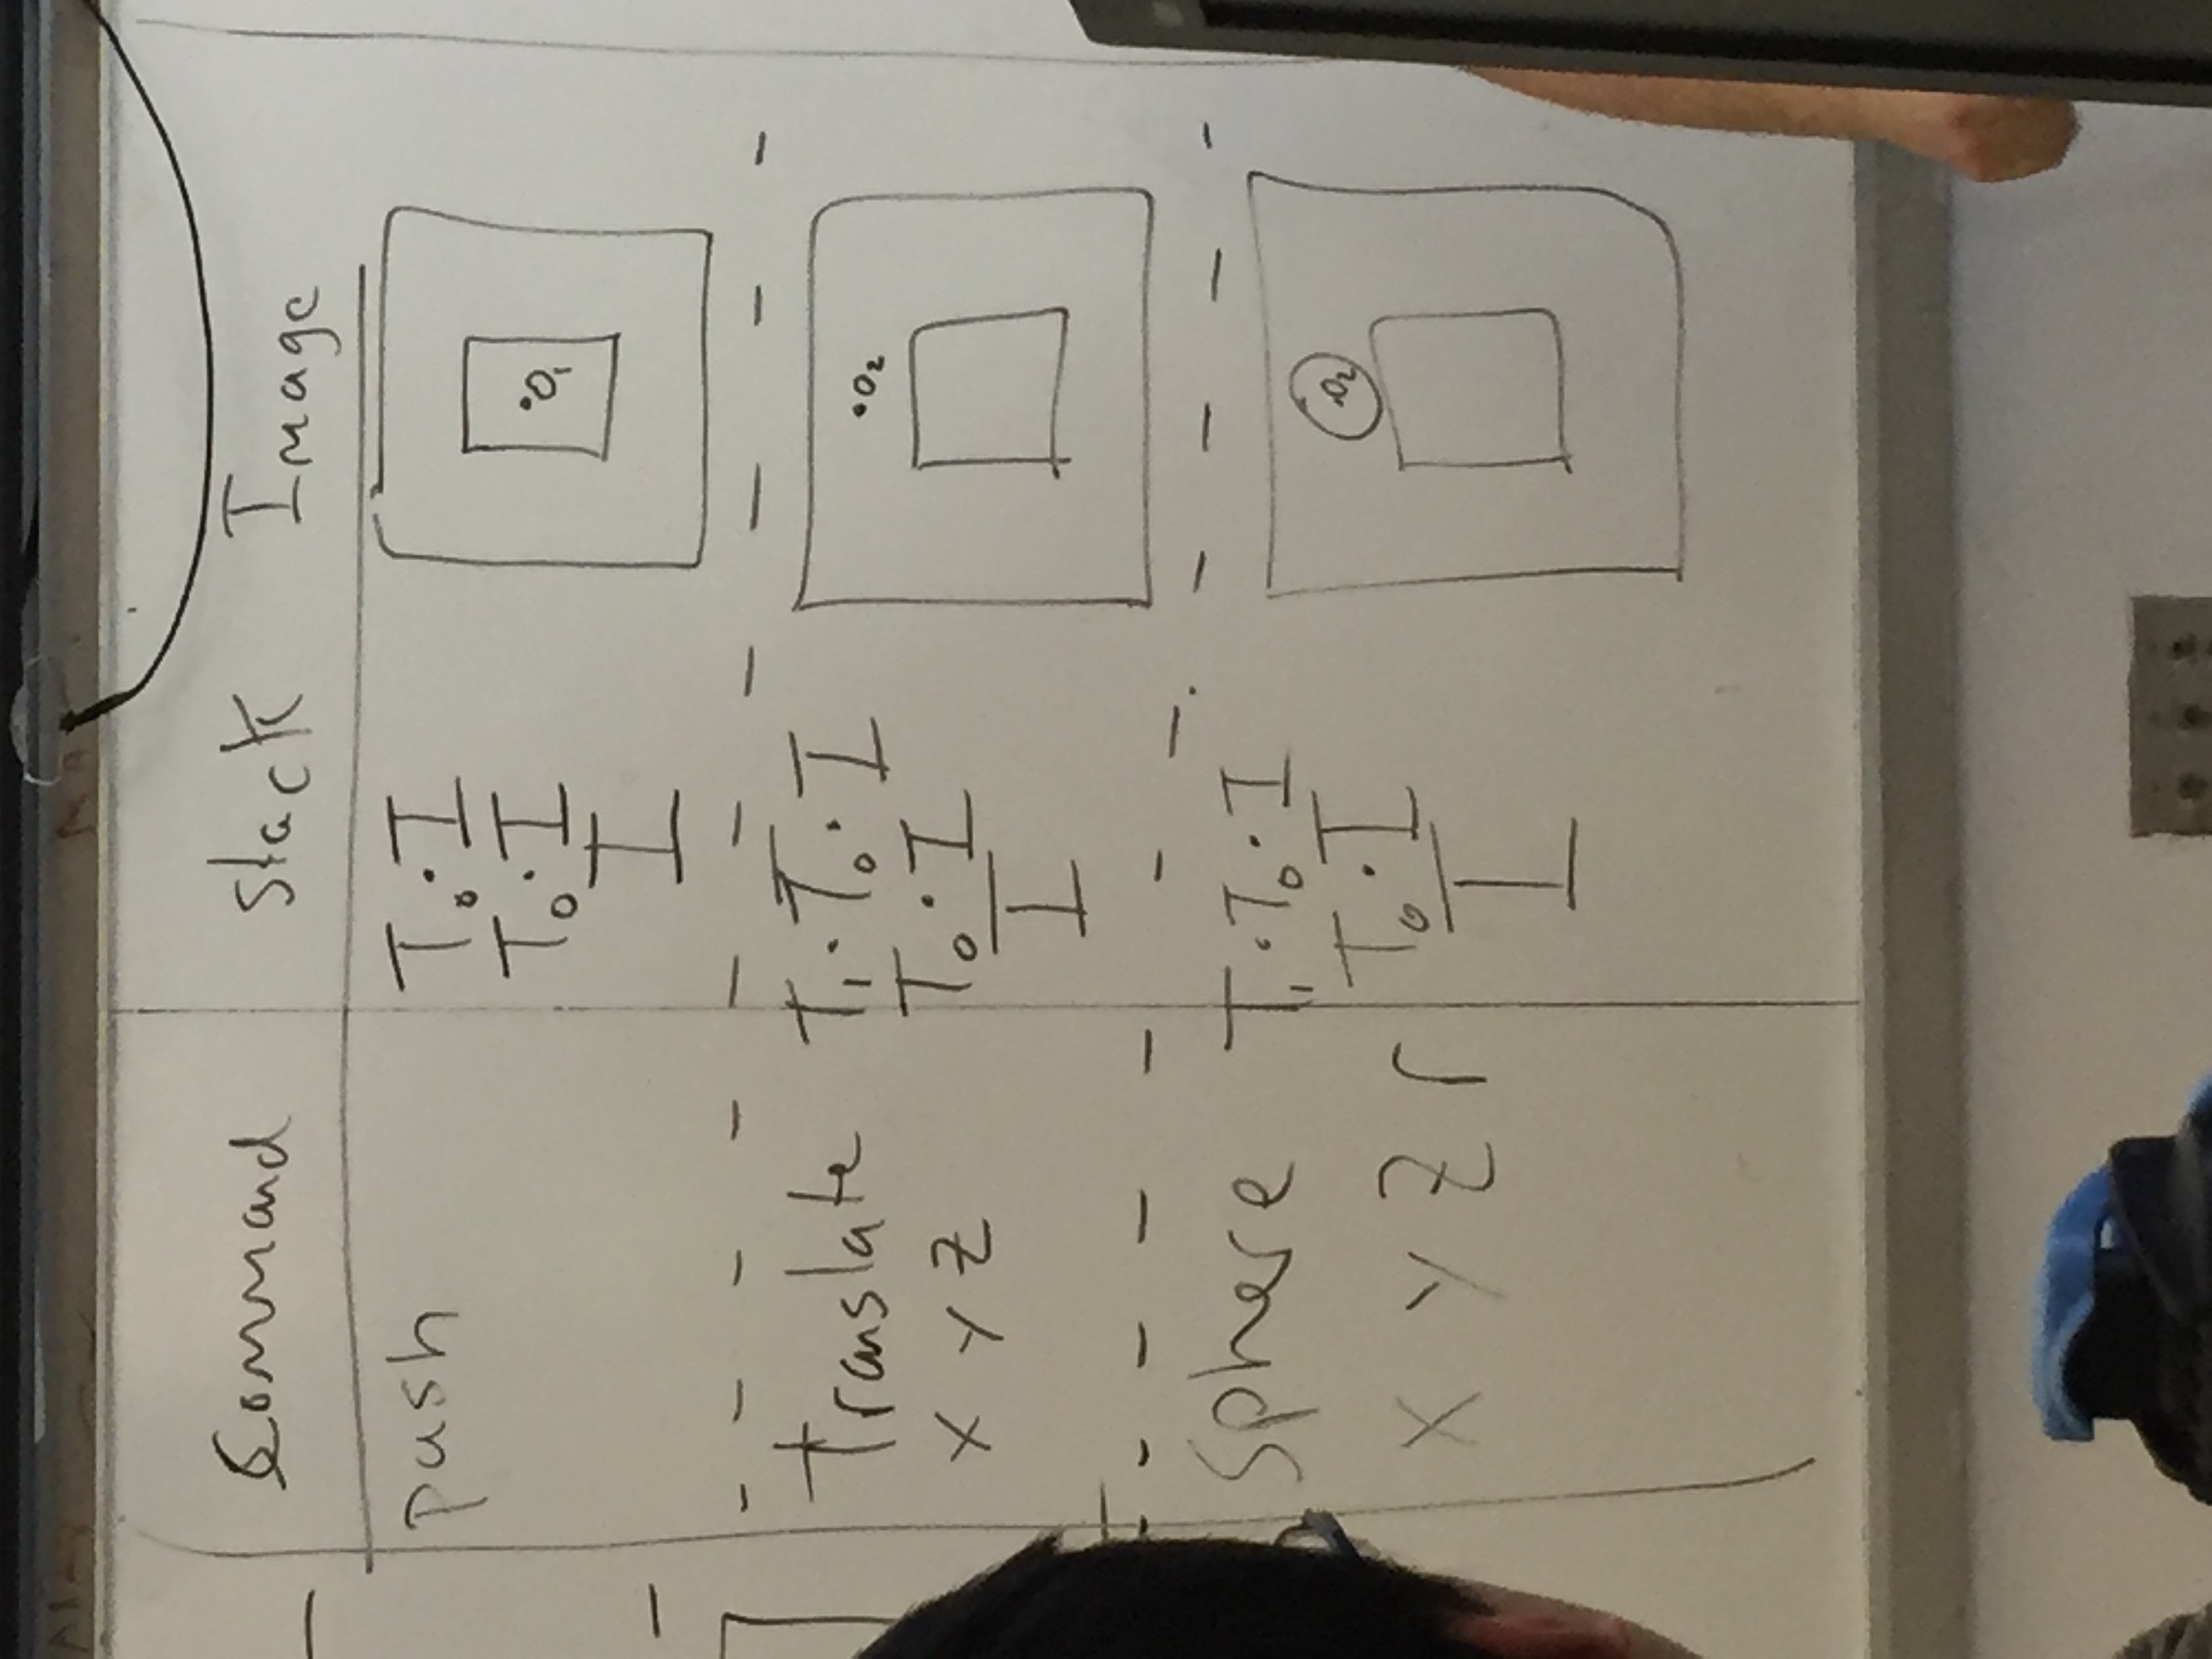 Command Stack Image
push T₀·I
T₀·I
I
·O₁
Translate T₁·T₀·I
x y z T₀·I
I
·O₂
Sphere T₁·T₀·I
x y z r T₀·I
I
·O₂